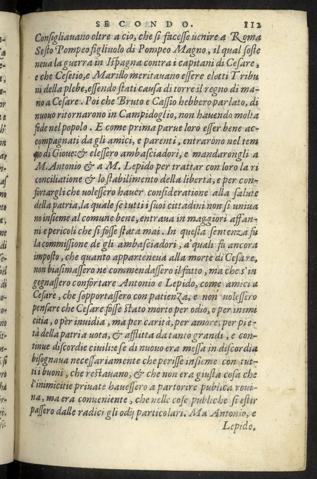 SECONDO. 112
Consigliavano oltre a ciò, che si facesse venire a Roma
Sesto Pompeo figliuolo di Pompeo Magno, il qual soste
neva la guerra in Ispagna contra i capitani di Cesare,
e che Cesetio, e Marillo meritavano essere eletti Tribu
ni della plebe, essendo stati causa di torre il regno di ma-
no a Cesare. Poi che Bruto e Cassio hebbero parlato, di
nuovo ritornarono in Campidoglio, non havendo molta
fede nel popolo. E come prima parve loro esser bene ac-
compagnati da gli amici, e parenti, entrarono nel tem
po di Giove: & elessero ambasciadori, e mandarongli a
M. Antonio & a M. Lepido per trattar con loro la ri
conciliatione & lo stabilimento della libertà, e per con-
fortargli che volessero haver consideratione alla salute
della patria, la quale se tutti i suoi cittadini non si univa
no insieme al comune bene, entrava in maggiori affan-
ni e pericoli che si fosse stata mai. In questa sentenza fu
la commissione de gli ambasciadori, a' quali fu ancora
imposto, che quanto apparteneva alla morte di Cesare,
non biasimassero ne commendassero il fatto, ma che s'in
gegnassero confortare Antonio e Lepido, come amici a
Cesare, che sopportassero con patienza, e non volessero
pensare che Cesare fosse stato morto per odio, o per inimi
citia, o per invidia, ma per carità, per amore, per pie-
tà della patria vota, & afflitta da tanto grandi, e con-
tinue discordie civili: e se di nuovo era messa in discordia
bisognava necessariamente che perisse insieme con tut-
ti i buoni, che restavano, & che non era giusta cosa che
l'inimicitie private havessero a partorire publica rovi-
na, ma era conveniente, che nelle cose publiche si estir
passero dalle radici gli odij particolari. Ma Antonio, e
Lepido,